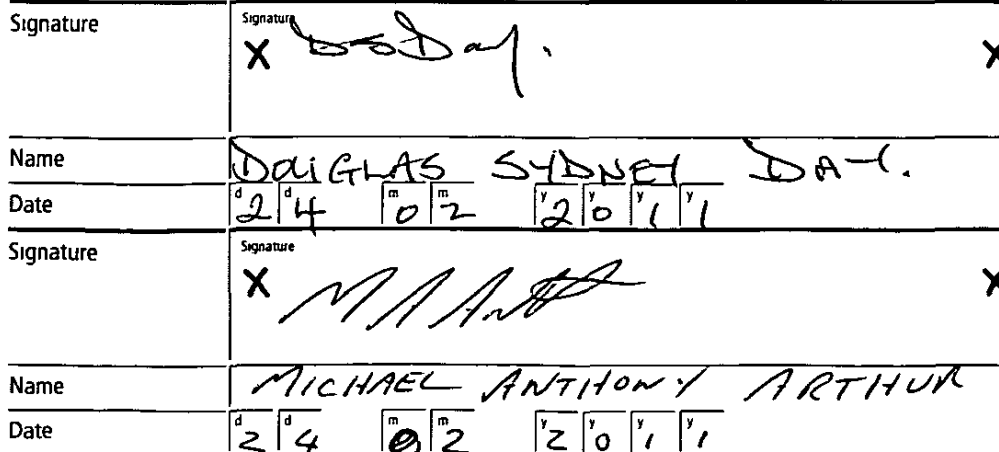 Signature Signature
X DSDay. X
Name DOUGLAS SYDNEY DAY.
Date d d m m y y y y
24 02 2011
Signature Signature
X M A Arthur X
Name MICHAEL ANTHONY ARTHUR
Date d d m m y y y y
24 02 2011